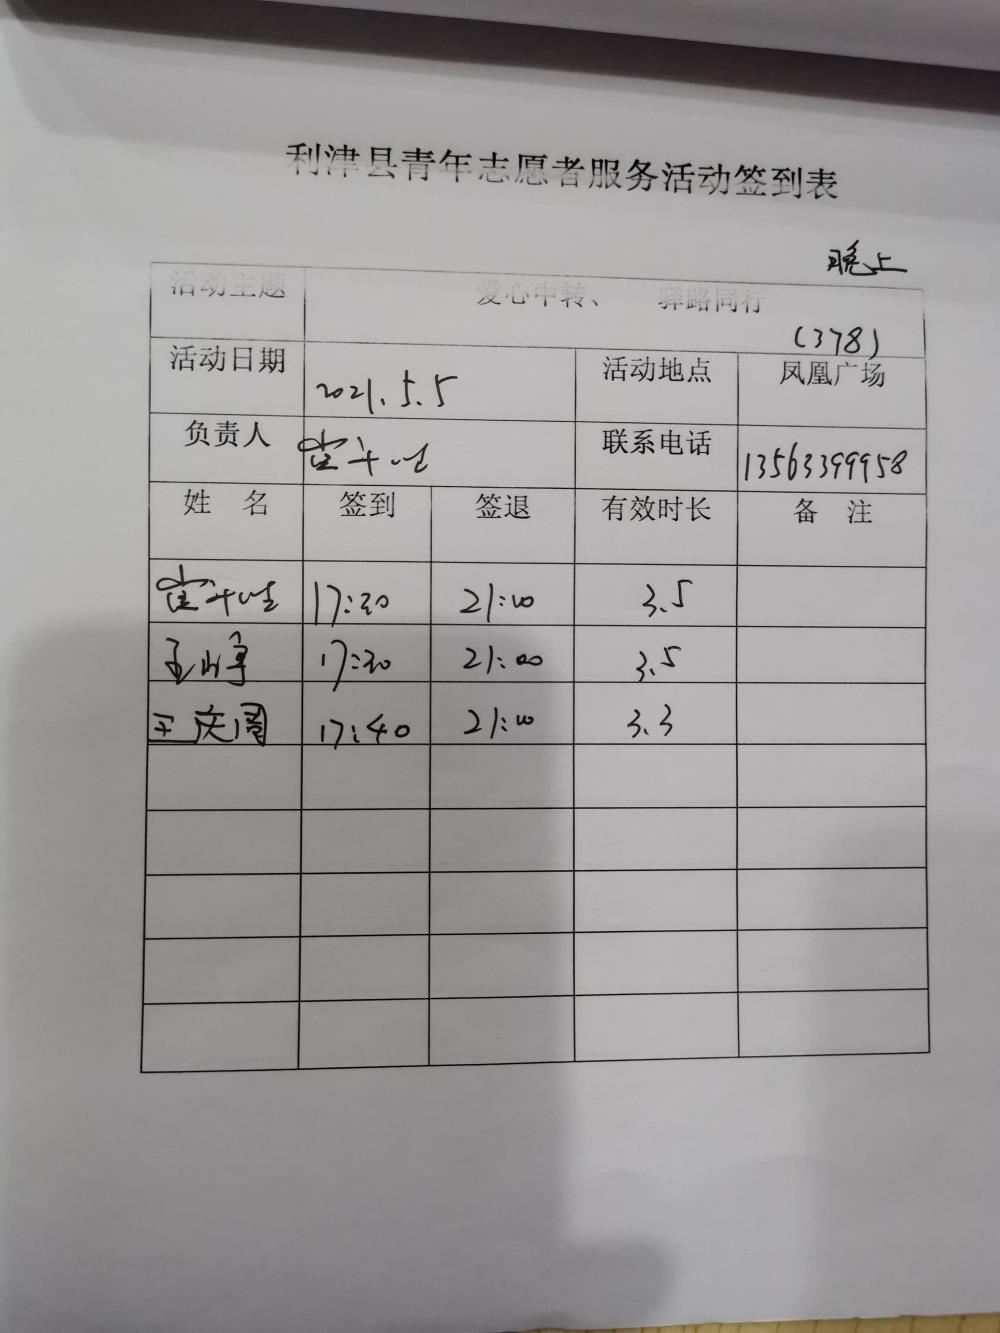 利津县青年志愿者服务活动签到表
晚上
活动主题 爱心中转、 驿路同行
(378)
活动日期 2021.5.5 活动地点 凤凰广场
负责人 联系电话 13563399958
姓 名 签到 签退 有效时长 备 注
17:30 21:00 3.5
17:30 21:00 3.5
王庆周 17:40 21:00 3.3